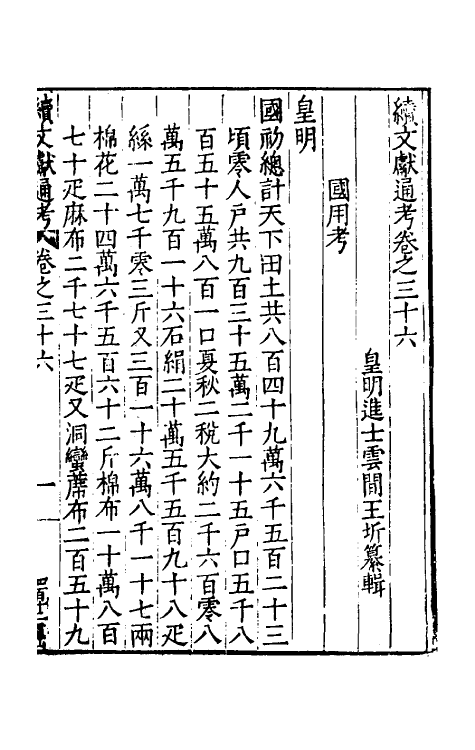 續文獻通考卷之三十六
皇明進士雲間王圻纂輯
國用考
皇明
國初總計天下田土共八百四十九萬六千五百二十三
頃零人戶共九百三十五萬二千一十五戶口五千八
百五十五萬八百一口夏秋二稅大約二千六百零八
萬五千九百一十六石絹二十萬五千五百九十八疋
絲一萬七千零三斤又三百一十六萬八千一十七兩
棉花二十四萬六千五百六十二斤棉布一十萬八百
七十疋麻布二千七十七疋又洞蠻蓆布二百五十九
續文獻通考 卷之三十六 一